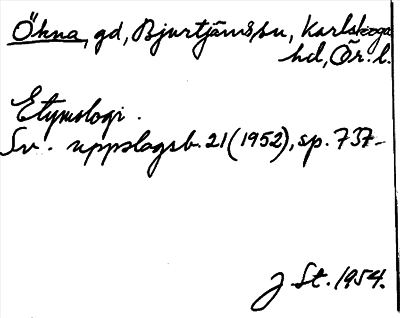 Ökna, gd, Bjurtjärns sn, Karlskoga
hd, Ör. l.
Etymologi.
Sv. uppslagsb. 21 (1952), sp. 737.
J St. 1954.